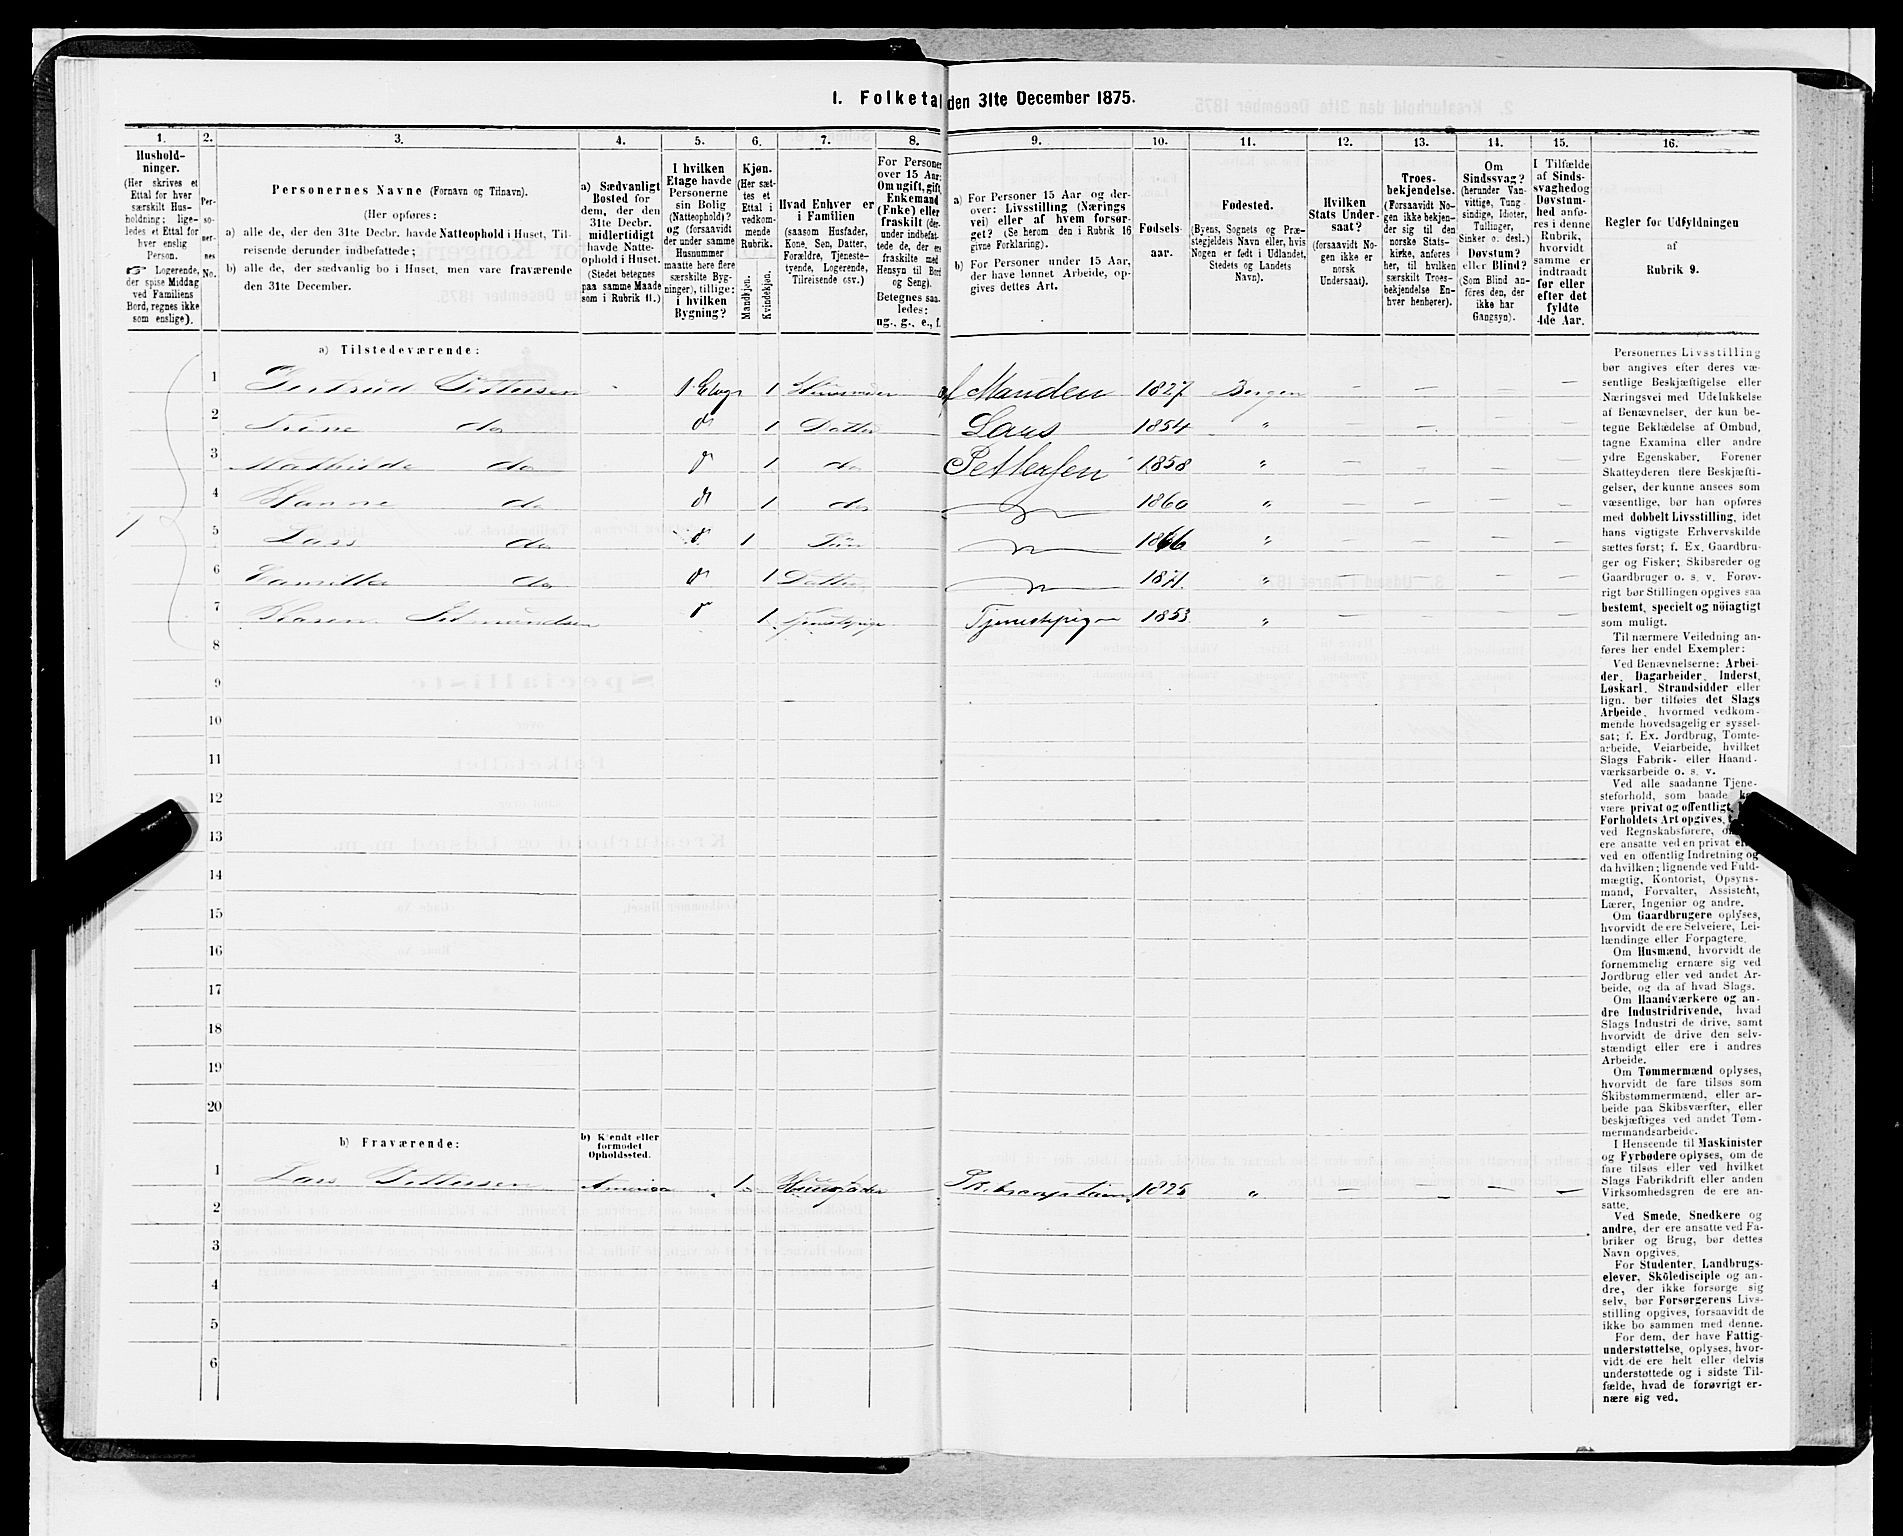 1. Folketal den 31te December 1875.
1.
Hushold-
ninger.
(Her skrives et
Ettal for hver
særskilt Hus-
holdning; lige-
ledes et Ettal for
hver enslig
Person.
☞ Logerende,
der spise Middag
ved Familiens
Bord, regnes ikke
som enslige).
2.
Per-
so-
ner-
nes
No.
3.
Personernes Navne (Fornavn og Tilnavn).
(Her opføres:
a) alle de, der den 31te Decbr. havde Natteophold i Huset, Til-
reisende derunder indbefattede;
b) alle de, der sædvanlig bo i Huset, men vare fraværende
den 31te December.
4.
a) Sædvanligt
Bosted for
dem, der den
31te Decbr.
midlertidigt
havde Natte-
ophold i Huset.
(Stedet betegnes
paa samme Maade
som i Rubrik 11.)
5.
I hvilken
Etage havde
Personerne
sin Bolig
(Natteophold)?
og (forsaavidt
der under samme
Husnummer
maatte here flere
særskilte Byg-
ninger), tillige:
i hvilken
Bygning?
6.
Kjøn.
(Her sæt-
tes et
Ettal i
vedkom-
mende
Rubrik.
Mandkjøn.
Kvindekjøn.
7.
Hvad Enhver er
i Familien
(saasom Husfader,
Kone, Søn, Datter,
Forældre, Tjeneste-
tyende, Logerende,
Tilreisende osv.)
8.
For Personer
over 15 Aar:
Om ugift, gift,
Enkemand
(Enke) eller
fraskilt (der-
under indbefat-
tede de, der ere
fraskilte med
Hensyn til Bord
og Seng).
Betegnes saa-
ledes:
ug., g., e., f.
9.
a) For Personer 15 Aar og der-
over: Livsstilling (Nærings
vei) eller af hvem forsør-
get? (Se herom den i Rubrik 16
givne Forklaring).
b) For Personer under 15 Aar,
der have lønnet Arbeide, op-
gives dettes Art.
10.
Fødsels-
aar.
11.
Fødested.
(Byens, Sognets og Præ-
stegjeldets Navn eller, hvis
Nogen er født i Udlandet,
Stedets og Landets
Navn).
12.
Hvilken
Stats Under-
saat?
(forsaavidt No-
gen ikke er
norsk
Undersaat).
13.
Troes-
bekjendelse.
(Forsaavidt No-
gen ikke bekjen-
der sig til den
norske Stats-
kirke, anføres
her, til hvilken
særskilt Troes-
bekjendelse En-
hver henhører).
14.
Om
Sindssvag?
(herunder Van-
vittige, Tung-
sindige, Idioter,
Tullinger,
Sinker o. desl.)
Døvstum?
eller Blind?
(Som Blind an-
føres den, der
ikke har
Gangsyn).
15.
I Tilfælde
af Sinds-
svaghed og
Døvstum-
hed anfø-
res i denne
Rubrik,
hvorvidt
samme er
indtraadt
før eller
efter det
fyldte
4de Aar.
16.
Regler for Udfyldningen
af
Rubrik 9.
a) Tilstedeværende:
1 Gertrud Pettersen 1 Etage 1 Husmoder af Manden 1827 Bergen — — — —
2 Trine do 1 Datter Lars 1854 " — — — —
3 Mathilde do 1 do Pettersen 1858 " — — — —
4 Hanne do 1 do 1860 " — — — —
1
5 Lars do 1 Søn 1866 " — — — —
6 Camilla do 1 Datter 1871 " — — — —
7 Karen 1 Tjenestepige Tjenestepige 1853 " — — — —
8
9
10
11
12
13
14
15
16
17
18
19
20
b) Fraværende:
b) Kjendt eller
formodet
Opholdssted.
1 Lars Pettersen Amerika 1 Husfader Skibscaptain 1825 " — — — —
2
3
4
5
6
Personernes Livsstilling
bør angives efter deres væ-
sentlige Beskjæftigelse eller
Næringsvei med Udelukkelse
af Benævnelser, der kun be-
tegne Beklædelse af Ombud,
tagne Examina eller andre
ydre Egenskaber. Forener
Skatteyderen flere Beskjæfti-
gelser, der kunne ansees som
væsentlige, bør han opføres
med dobbelt Livsstilling, idet
hans vigtigste Erhvervskilde
sættes først; f. Ex. Gaardbru-
ger og Fisker; Skibsreder og
Gaardbruger o. s. v. Forøv-
rigt bør Stillingen opgives saa
bestemt, specielt og nöiagtigt
som muligt.
Til nærmere Veiledning an-
føres her endel Exempler:
Ved Benævnelserne: Arbei-
der, Dagarbeider, Inderst,
Løskarl, Strandsidder eller
lign. bør tilføies det Slags
Arbeide, hvormed vedkom-
mende hovedsagelig er syssel-
sat; f. Ex. Jordbrug, Tomte-
arbeide, Veiarbeide, hvilket
Slags Fabrik- eller Haand-
værksarbeide o. s. v.
Ved alle saadanne Tjene-
steforhold, som baade
være privat og offentligt,
Forholdets Art opgives,
ved Regnskabsførere,
ere ansatte ved en privat
ved en offentlig Indretning og
da hvilken; lignende ved Fuld-
mægtig, Kontorist, Opsyns-
mand, Forvalter, Assistent,
Lærer, Ingeniør og andre.
Om Gaardbrugere oplyses,
hvorvidt de ere Selveiere, Lei-
lændinge eller Forpagtere.
Om Husmænd, hvorvidt de
fornemmelig ernære sig ved
Jordbrug eller ved andet Ar-
beide, og da af hvad Slags.
Om Haandværkere og an-
dre Industridrivende, hvad
Slags Industri de drive, samt
hvorvidt de drive den selv-
stændigt eller ere i andres
Arbeide.
Om Tømmermænd oplyses,
hvorvidt de fare tilsøs som
Skibstømmermænd, eller ar-
beide paa Skibsværfter, eller
beskjæftiges ved andet Tøm-
mermandsarbeide.
I Henseende til Maskinister
og Fyrbødere oplyses, om de
fare tilsøs eller ved hvilket
Slags Fabrikdrift eller anden
Virksomhedsgren de ere an-
satte.
Ved Smede, Snedkere og
andre, der ere ansatte ved Fa-
briker og Brug, bør dettes
Navn opgives.
For Studenter, Landbrugs-
elever, Skoledisciple og an-
dre, der ikke forsørge sig
selv, bør Forsørgerens Livs-
stilling opgives, forsaavidt de
ikke bo sammen med denne.
For dem, der have Fattig-
understøttelse, oplyses, hvor-
vidt de ere helt eller delvis
understøttede og i sidste Til-
fælde, hvad de forøvrigt er-
nære sig ved.